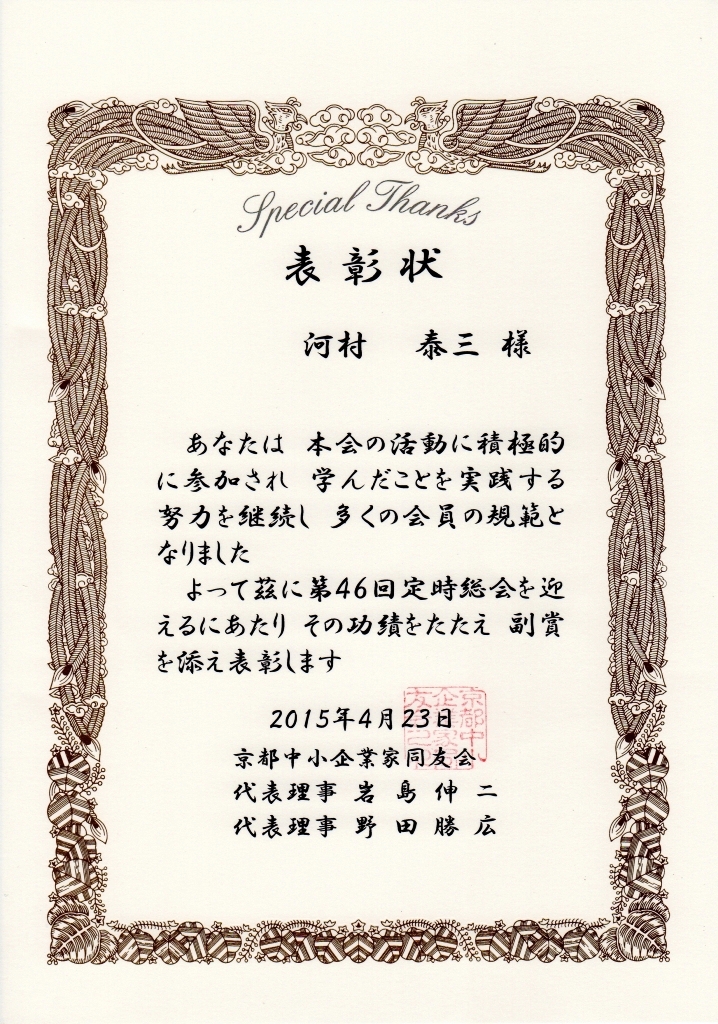 Special Thanks
表彰状
河村 泰三 様
あなたは 本会の活動に積極的
に参加され 学んだことを実践する
努力を継続し 多くの会員の規範と
なりました
よって茲に第46回定時総会を迎
えるにあたり その功績をたたえ 副賞
を添え表彰します
2015年4月23日
京都中小企業家同友会
代表理事 岩島伸二
代表理事 野田勝広